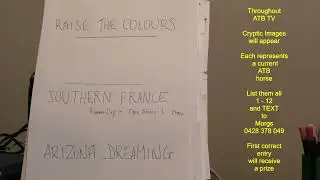 RAISE THE COLOURS
SOUTHERN FRANCE
ARIZONA DREAMING
Throughout
ATB TV
Cryptic Images
will appear
Each represents
a current
ATB
horse
List them all
1 - 12
and TEXT
to
Morgs
0428 378 049
First correct
entry
will receive
a prize